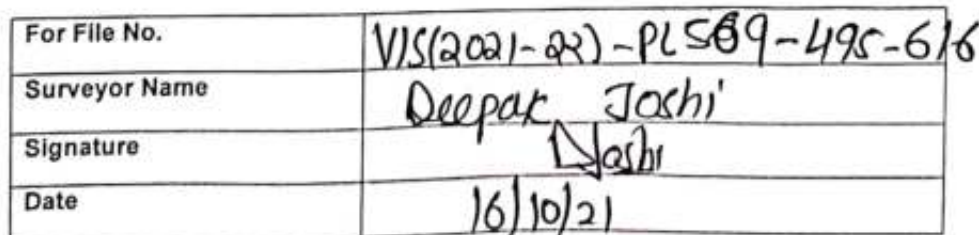 For File No. VIS(2021-22)-PL569-495-616
Surveyor Name Deepak Joshi
Signature DJoshi
Date 16/10/21